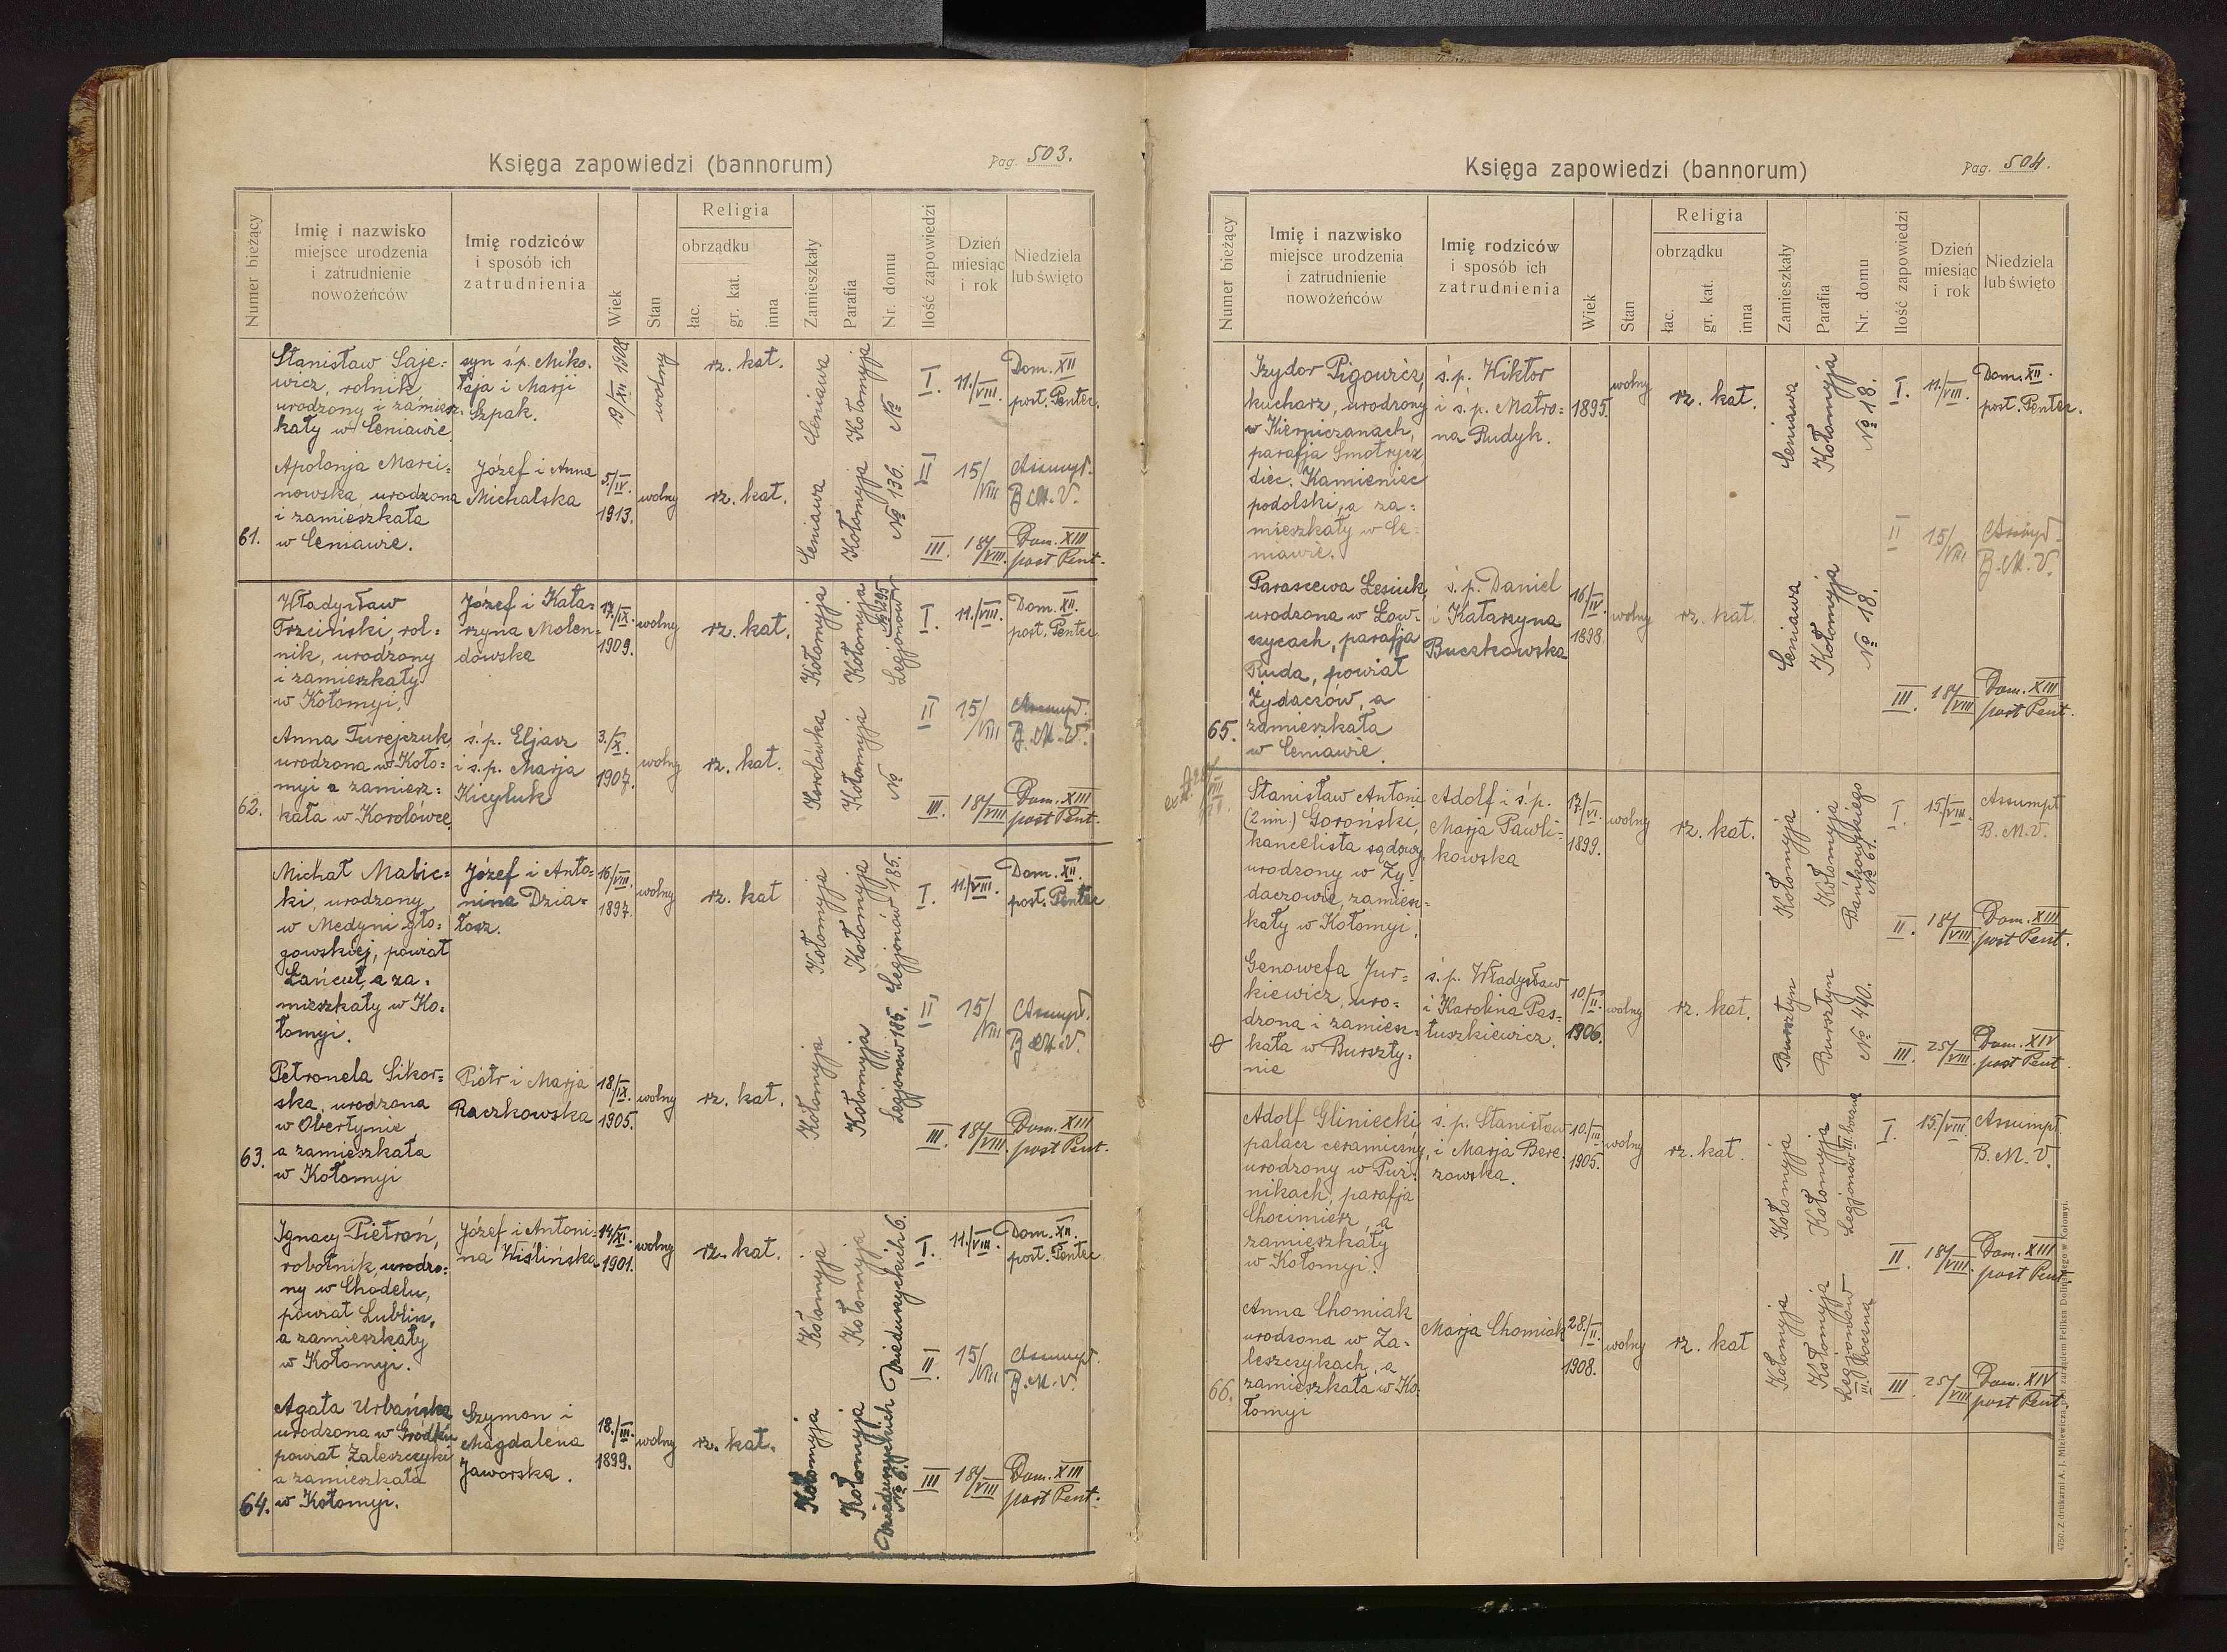 Księga zapowiedzi (bannorum)
Pag. 503.
Numer bieżący
Imię i nazwisko
miejsce urodzenia
i zatrudnienie
nowożeńców
Imię rodziców
i sposób ich
zatrudnienia
Wiek
Stan
Religia
obrządku
łac.
gr. kat.
inna
Zamieszkały
Parafia
Nr. domu
Ilość zapowiedzi
Dzień
miesiąc
i rok
Niedziela
lub święto
61.
Stanisław Saje=
wicz, rolnik
urodzony i zamiesz=
kały w Ceniawie
syn ś.p. Miko=
łaja i Marji
Szpak.
19/XII 1908
wolny
rz. kat.
Ceniawa
Kołomyja
№
Apolonja Marci=
nowska urodzona
i zamieszkała
w Ceniawie.
Józef i Anna
Michalska
5/IV.
1913.
wolny
rz. kat.
Ceniawa
Kołomyja
№ 136.
I. 11./VIII. Dom. XII
post. Pentec.
II 15/VIII Assumpt.
B. M. V.
III. 18/VIII. Dom. XIII
post Pent.
62.
Władysław
rol=
nik, urodzony
i zamieszkały
w Kołomyi.
Józef i Kata=
rzyna Molen=
dowska
17/IX.
1909.
wolny
rz. kat.
Kołomyja
Kołomyja
Legjonów
№ 295
Anna Turejczuk,
urodzona w Koło=
myi a zamiesz=
kała w Korolówce
ś.p. Eljasz
i ś.p. Marja
Kicyluk
3./X.
1907.
wolny
rz. kat.
Korolówka
Kołomyja
№
I. 11./VIII. Dom. XII.
post. Pentec
II 15/VIII Assumpt.
B. M. V.
III. 18/VIII Dom. XIII
post Pent.
63.
Michał Malic=
ki, urodzony
w Medyni gło=
gowskiej, powiat
Łańcut, a za=
mieszkały w Ko=
łomyi.
Józef i Anto=
nina Dzia=
łosz.
16/VIII.
1897.
wolny
rz. kat
Kołomyja
Kołomyja
Legjonów 185.
Petronela Sikor=
ska, urodzona
w Obertynie
a zamieszkała
w Kołomyi
Piotr i Marja
Raczkowska
18/IX.
1905.
wolny
rz. kat.
Kołomyja
Kołomyja
Legjonów 185.
I. 11./VIII. Dom. XII.
post. Pentec
II 15/VIII Assumpt.
B. M. V.
III. 18/VIII. Dom. XIII
post Pent.
64.
Ignacy Pietroń,
robotnik, urodzo=
ny w Chodelu,
powiat Lublin,
a zamieszkały
w Kołomyi.
Józef i Antoni=
na Wiślińska
14/XI.
1901.
wolny
rz. kat.
Kołomyja
Kołomyja
Dzieduszyckich 6.
Agata Urbańska
urodzona w Gródku
powiat Zaleszczyki
a zamieszkała
w Kołomyi.
Szymon i
Magdalena
Jaworska.
18./III.
1899.
wolny
rz. kat.
Kołomyja
Kołomyja
Dzieduszyckich
№ 6.
I. 11./VIII. Dom. XII.
post. Pentec
II. 15/VIII Assumpt.
B. M. V.
III 18/VIII Dom. XIII
post Pent.
Księga zapowiedzi (bannorum)
Pag. 504.
Numer bieżący
Imię i nazwisko
miejsce urodzenia
i zatrudnienie
nowożeńców
Imię rodziców
i sposób ich
zatrudnienia
Wiek
Stan
Religia
obrządku
łac.
gr. kat.
inna
Zamieszkały
Parafia
Nr. domu
Ilość zapowiedzi
Dzień
miesiąc
i rok
Niedziela
lub święto
65.
Izydor Pigowicz,
kucharz, urodzony
w Kierniczanach,
parafja Smotrycz
diec. Kamieniec
podolski, a za=
mieszkały w Ce=
niawie.
ś.p. Wiktor
i ś.p. Matro=
na Rudyk.
1895.
wolny
rz. kat.
Ceniawa
Kołomyja
№ 18.
Parascewa Łesiuk,
urodzona w Łow=
czycach, parafja
Ruda, powiat
Żydaczów, a
zamieszkała
w Ceniawie.
ś.p. Daniel
i Katarzyna
Buczkowska
16/IV.
1898.
wolny
rz. kat.
Ceniawa
Kołomyja
№ 18.
I. 11./VIII. Dom. XII.
post. Pentec.
II 15/VIII Assumpt.
B. M. V.
III. 18/VIII Dom. XIII
post Pent.
Stanisław Antoni
(2 im.) Goroński,
kancelista sądowy,
urodzony w Ży=
daczowie, zamiesz=
kały w Kołomyi.
Adolf i ś.p.
Marja Pawli=
kowska
17/VI.
1899.
wolny
rz. kat.
Kołomyja
Kołomyja
Bańkowskiego
№ 61.
Genowefa Jur=
kiewicz, uro=
dzona i zamiesz=
kała w Burszty=
nie
ś.p. Władysław
i Karolina Pas=
tuszkiewicz.
10/II.
1906.
wolny
rz. kat.
Bursztyn
Bursztyn
№ 440.
I. 15/VIII. Assumpt
B. M. V.
II. 18/VIII. Dom. XIII
post Pent.
III. 25/VIII. Dom. XIV
post Pent.
66.
Adolf Gliniecki,
palacz ceramiczny,
urodzony w Puź=
nikach, parafja
Chocimierz, a
zamieszkały
w Kołomyi.
ś.p. Stanisław
i Marja Bere=
zowska.
10./III.
1905.
wolny
rz. kat.
Kołomyja
Kołomyja
Legjonów III. boczna
Anna Chomiak
urodzona w Za=
leszczykach, a
zamieszkała w Ko=
łomyi
Marja Chomiak
28./II.
1908.
wolny
rz. kat
Kołomyja
Kołomyja
Legjonów
III. boczna
I. 15./VIII. Assumpt.
B. M. V.
II. 18/VIII. Dom. XIII
post Pent.
III. 25/VIII Dom. XIV
post Pent.